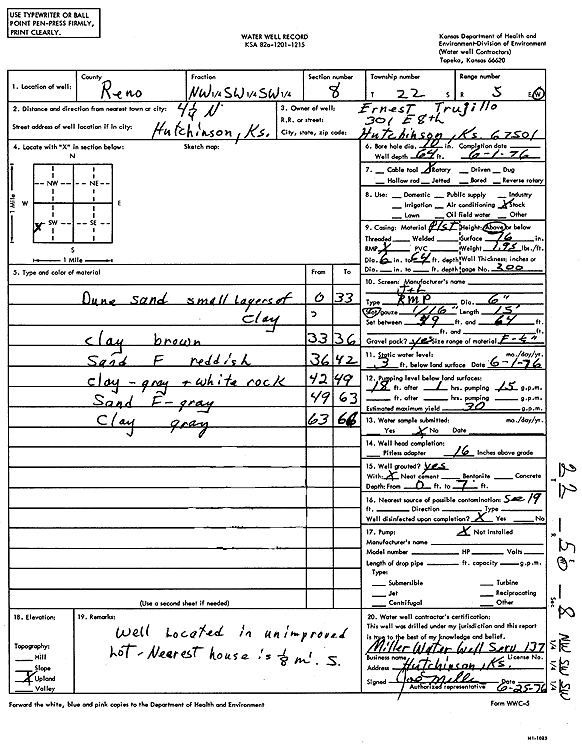 USE TYPEWRITER OR BALL
POINT PEN-PRESS FIRMLY,
PRINT CLEARLY.
WATER WELL RECORD
KSA 82a-1201-1215
Kansas Department of Health and
Environment-Division of Environment
(Water well Contractors)
Topeka, Kansas 66620
1. Location of well:
County
Reno
Fraction
NW 1/4 SW 1/4 SW 1/4
Section number
8
Township number
T 22 S
Range number
R 5 E/W
2. Distance and direction from nearest town or city: 4 1/4 N
Street address of well location if in city: Hutchinson, Ks.
3. Owner of well: Ernest Trujillo
R.R. or street: 301 E 8th
City, state, zip code: Hutchinson, Ks. 67501
4. Locate with "X" in section below:
Sketch map:
N
NW NE
W E
SW SE
X
S
1 Mile
1 Mile
6. Bore hole dia. 10 in. Completion date
Well depth 64 ft. 6-1-76
7. Cable tool X Rotary Driven Dug
Hollow rod Jetted Bored Reverse rotary
8. Use: Domestic Public supply Industry
Irrigation Air conditioning X Stock
Lawn Oil field water Other
9. Casing: Material Plst Height: Above or below
Threaded Welded Surface 16 in.
RMP X PVC Weight 1.95 lbs./ft.
Dia. 6 in. to 64 ft. depth Wall Thickness: inches or
Dia. in. to ft. depth gage No. 200
5. Type and color of material
From To
Dune sand small layers of 0 33
Clay
clay brown 33 36
Sand F reddish 36 42
clay - gray + white rock 42 49
Sand F-gray 49 63
Clay gray 63 66
(Use a second sheet if needed)
10. Screen: Manufacturer's name
Type RMP Dia. 6"
Slot/gauze 1/16" Length 15'
Set between 49 ft. and 64 ft.
ft. and ft.
Gravel pack? yes Size range of material
11. Static water level: mo./day/yr.
3 ft. below land surface Date 6-1-76
12. Pumping level below land surfaces:
18 ft. after 1 hrs. pumping 15 g.p.m.
ft. after hrs. pumping g.p.m.
Estimated maximum yield 30 g.p.m.
13. Water sample submitted: mo./day/yr.
Yes X No Date
14. Well head completion:
Pitless adapter 16 Inches above grade
15. Well grouted? yes
With: X Neat cement Bentonite Concrete
Depth: From 0 ft. to 7 ft.
16. Nearest source of possible contamination: See 19
ft. Direction Type
Well disinfected upon completion? X Yes No
17. Pump: X Not installed
Manufacturer's name
Model number HP Volts
Length of drop pipe ft. capacity g.p.m.
Type:
Submersible Turbine
Jet Reciprocating
Centrifugal Other
18. Elevation:
Topography:
Hill
Slope
X Upland
Valley
19. Remarks:
Well Located in unimproved
Lot - Nearest house is 1/8 mi. S.
20. Water well contractor's certification:
This well was drilled under my jurisdiction and this report
is true to the best of my knowledge and belief.
Miller Water Well Serv 137
Business name License No.
Address Hutchinson, Ks.
Signed Miller Date 6-25-76
Authorized representative
Forward the white, blue and pink copies to the Department of Health and Environment
Form WWC-5
T 22 R 5 W Sec 8 NW 1/4 SW 1/4 SW 1/4